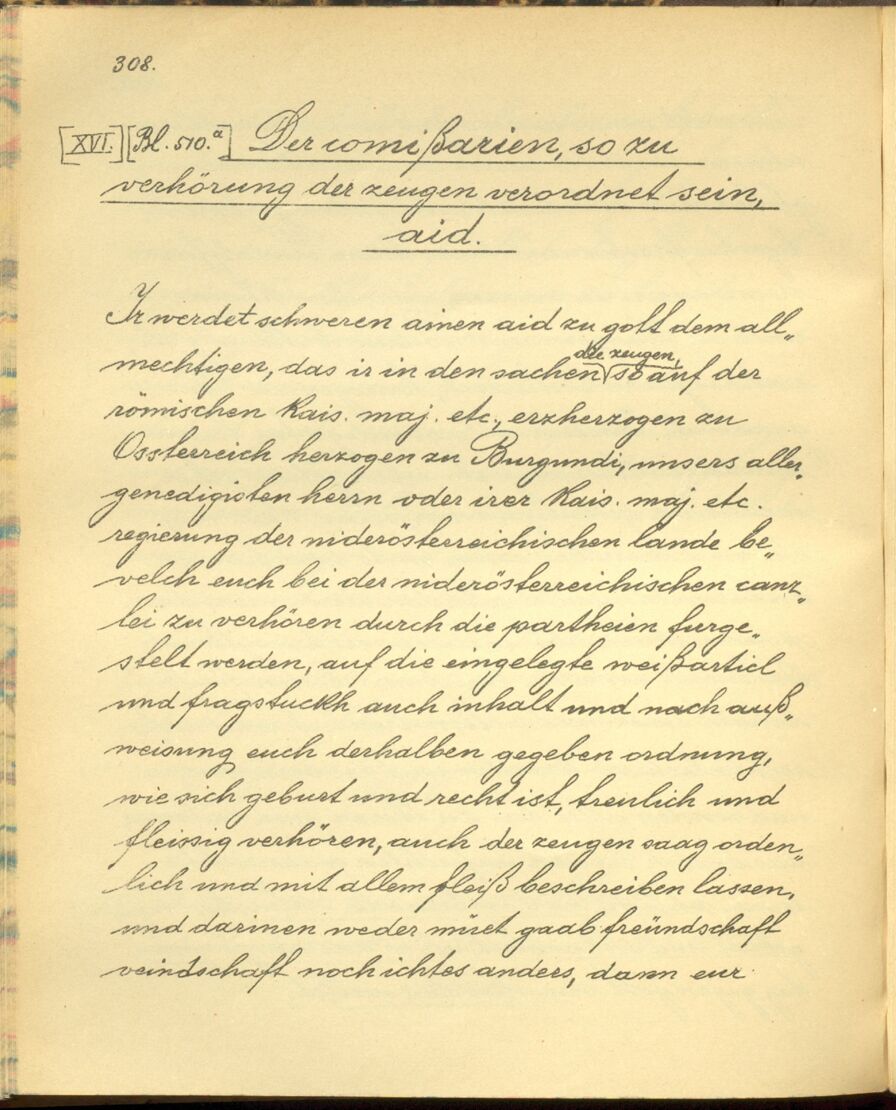 308.
[XVI.] [Bl. 510.a] Der comißarien, so zu
verhörung der zeugen verordnet sein,
aid.
Ir werdet schweren ainen aid zu gott dem all„
die zeugen,
mechtigen, das ir in den sachen so auf der
römischen Kais. maj. etc., erzherzogen zu
Ossterreich herzogen zu Burgundi, unsers aller„
genedigisten herrn oder irer Kais. maj. etc.
regierung der niderösterreichischen lande be„
velch euch bei der niderösterreichischen canz„
lei zu verhören durch die partheien furge„
stelt werden, auf die eingelegte weißarticl
und fragstuckh auch inhalt und nach auß„
weisung euch derhalben gegeben ordnung,
wie sich geburt und recht ist, treulich und
fleissig verhören, auch der zeugen saag orden„
lich und mit allem fleiß beschreiben lassen,
und darinen weder müet gaab freündschaft
veindschaft noch ichtes anders, dann eur